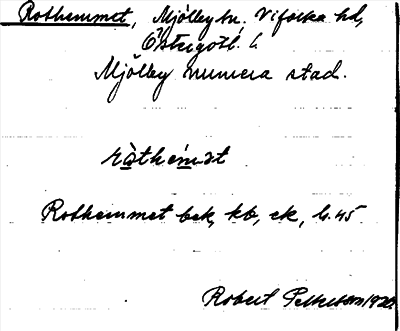 Rothemmet, Mjölby sn. Vifolka hd,
Östergötl. l.
Mjölby numera stad.
ràthémət
Rothemmet bek, kb, ek, G. 45
Robert Pettersson 1920.